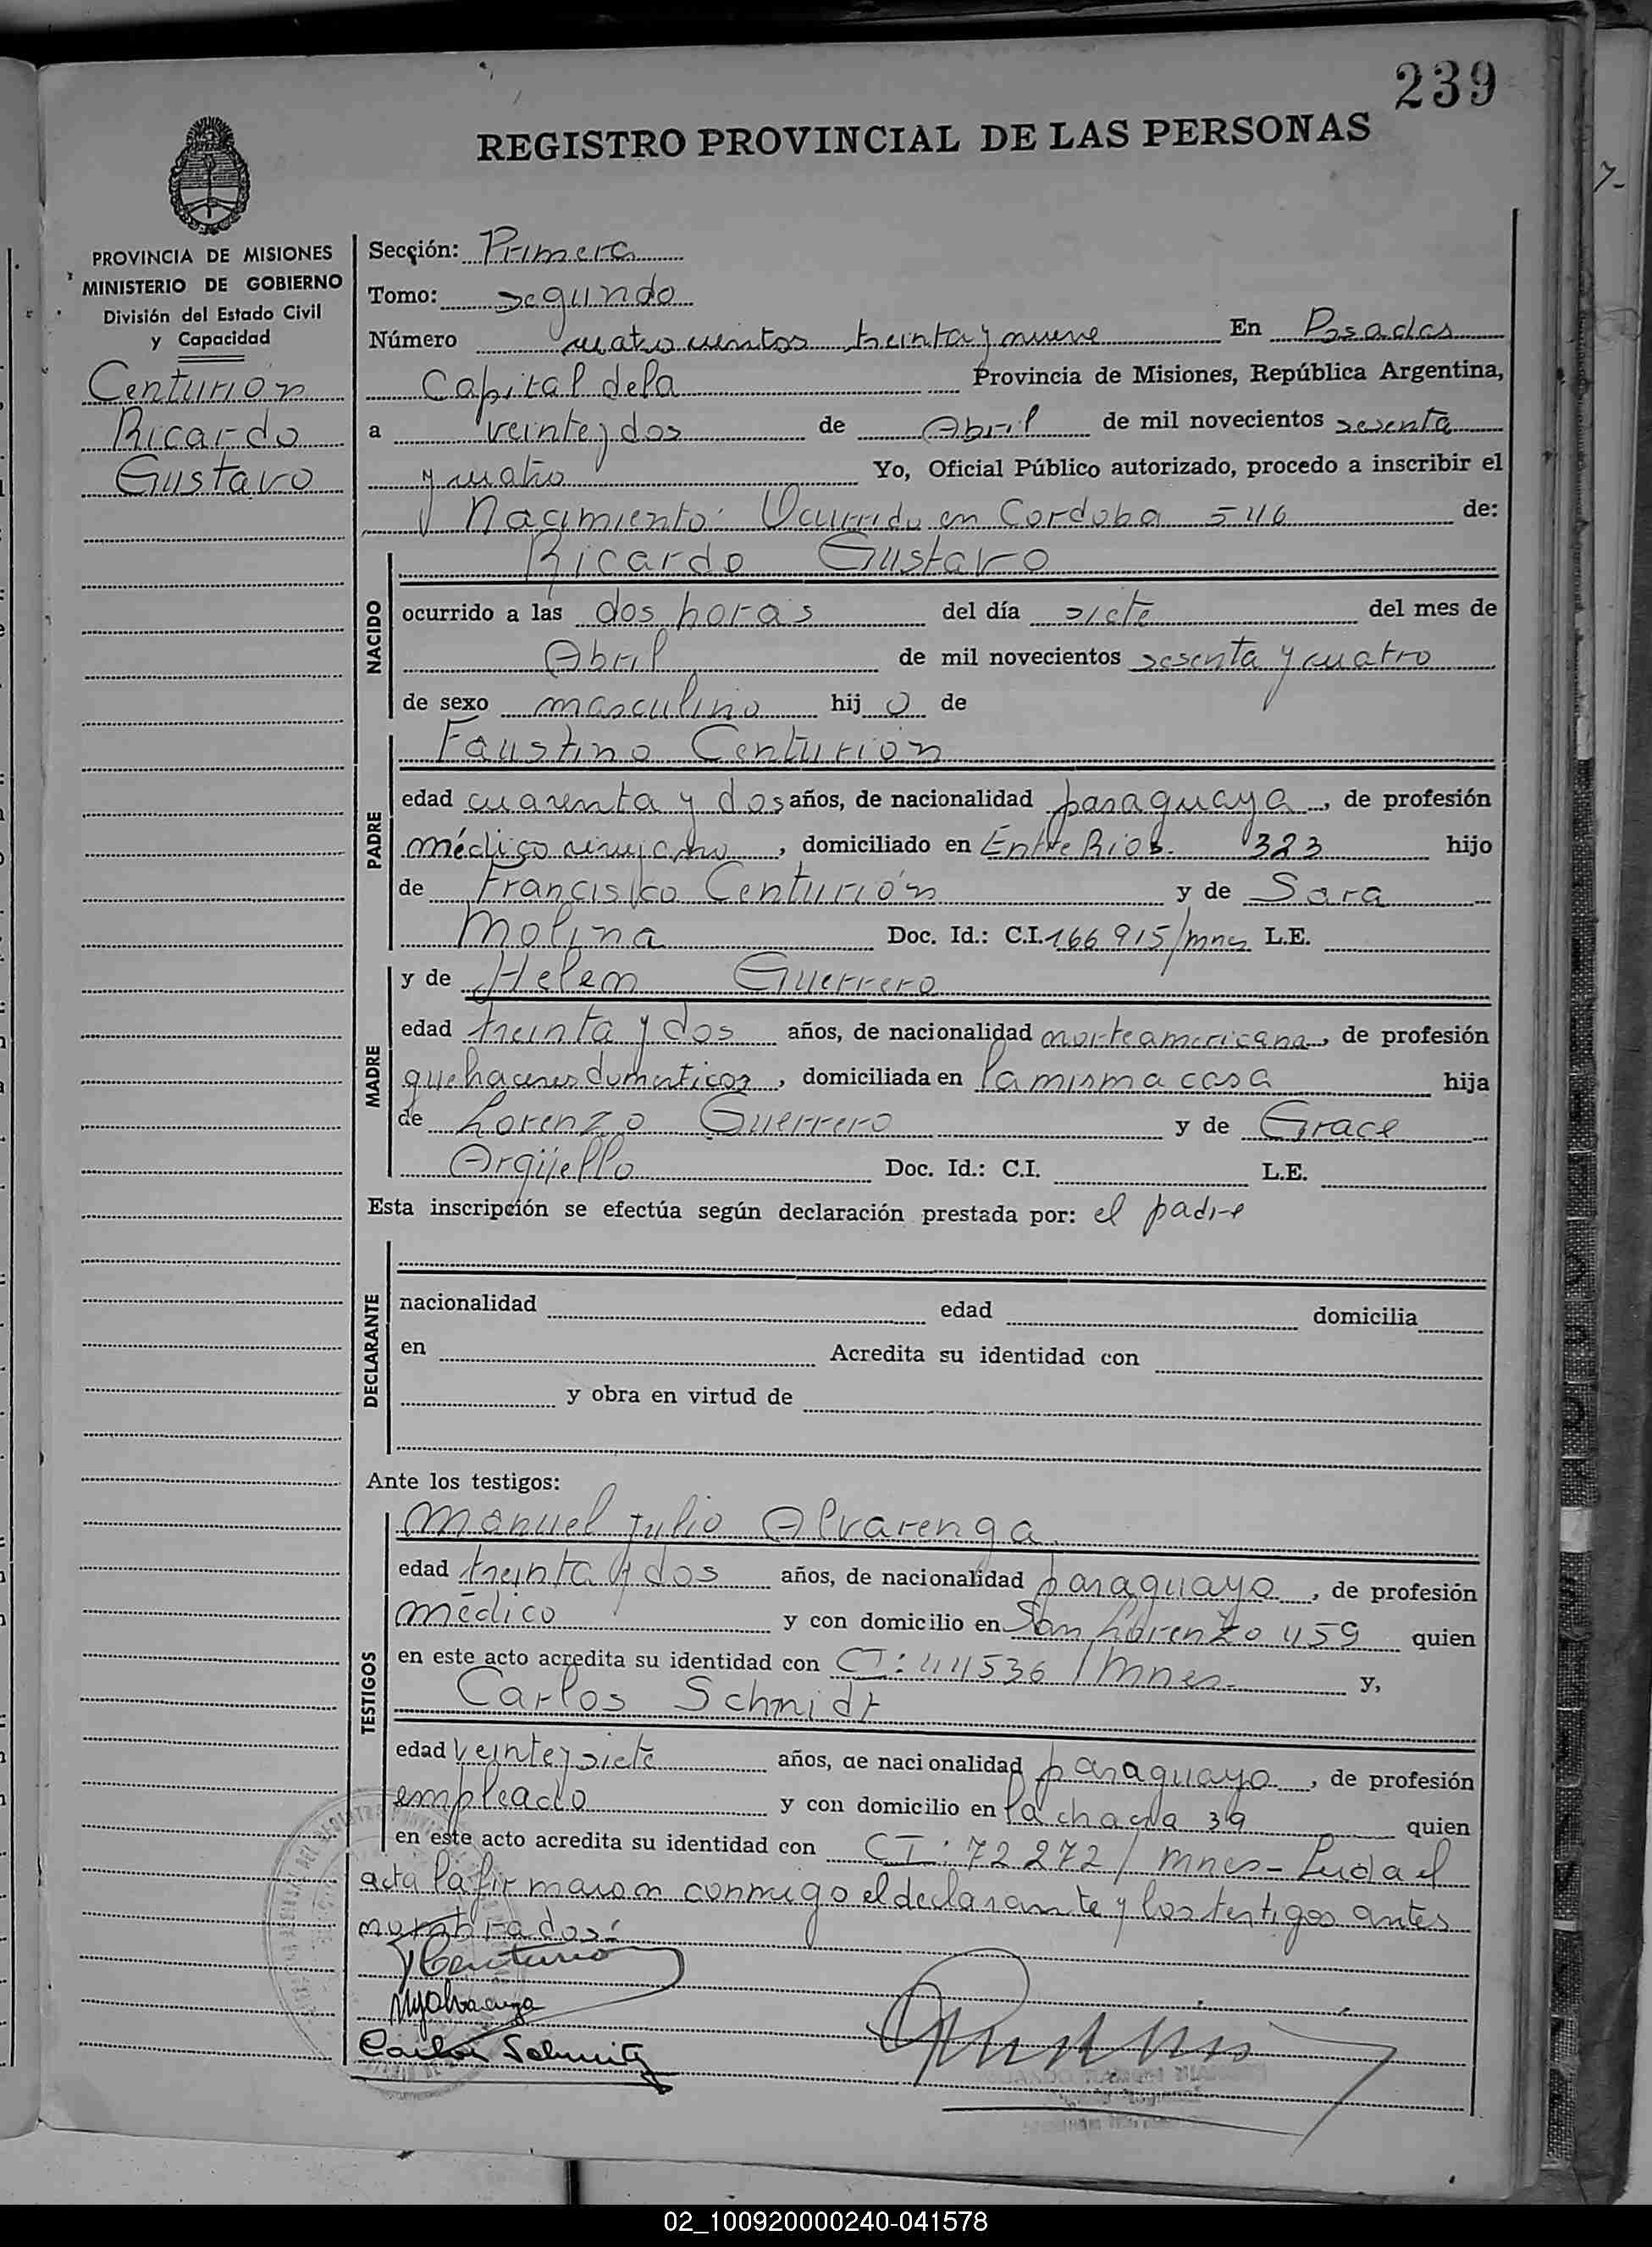 239
REGISTRO PROVINCIAL DE LAS PERSONAS
PROVINCIA DE MISIONES
MINISTERIO DE GOBIERNO
División del Estado Civil
y Capacidad
Centurión
Ricardo
Gustavo
Sección: Primera
Tomo: segundo
Número cuatrocientos treinta y nueve En Posadas
Capital de la Provincia de Misiones, República Argentina,
a veinte y dos de Abril de mil novecientos sesenta
y cuatro Yo, Oficial Público autorizado, procedo a inscribir el
Nacimiento: Ocurrido en Cordoba 546 de:
Ricardo Gustavo
NACIDO
ocurrido a las dos horas del día siete del mes de
Abril de mil novecientos sesenta y cuatro
de sexo masculino hij o de
PADRE
Faustino Centurión
edad cuarenta y dos años, de nacionalidad paraguaya, de profesión
médico cirujano, domiciliado en Entre Rios. 323 hijo
de Francisco Centurión y de Sara
Molina Doc. Id.: C.I. 166915/mnes L.E.
MADRE
y de Helem Guerrero
edad treinta y dos años, de nacionalidad norteamericana, de profesión
quehaceres domesticos, domiciliada en la misma casa hija
de Lorenzo Guerrero y de Grace
Argüello Doc. Id.: C.I. L.E.
Esta inscripción se efectúa según declaración prestada por: el padre
DECLARANTE
nacionalidad edad domicilia
en Acredita su identidad con
y obra en virtud de
Ante los testigos:
TESTIGOS
Manuel Julio Alvarenga
edad treinta y dos años, de nacionalidad paraguayo, de profesión
médico y con domicilio en San Lorenzo 459 quien
en este acto acredita su identidad con CI: 44536/mnes- y,
Carlos Schmidt
edad veinte y siete años, de nacionalidad paraguayo, de profesión
empleado y con domicilio en la chacra 39 quien
en este acto acredita su identidad con CI: 72272/mnes- Leida el
acta la firmaron conmigo el declarante y los testigos antes
nombrados:
FCenturión
MJAlvarenga
Carlos Schmidt
02_100920000240-041578